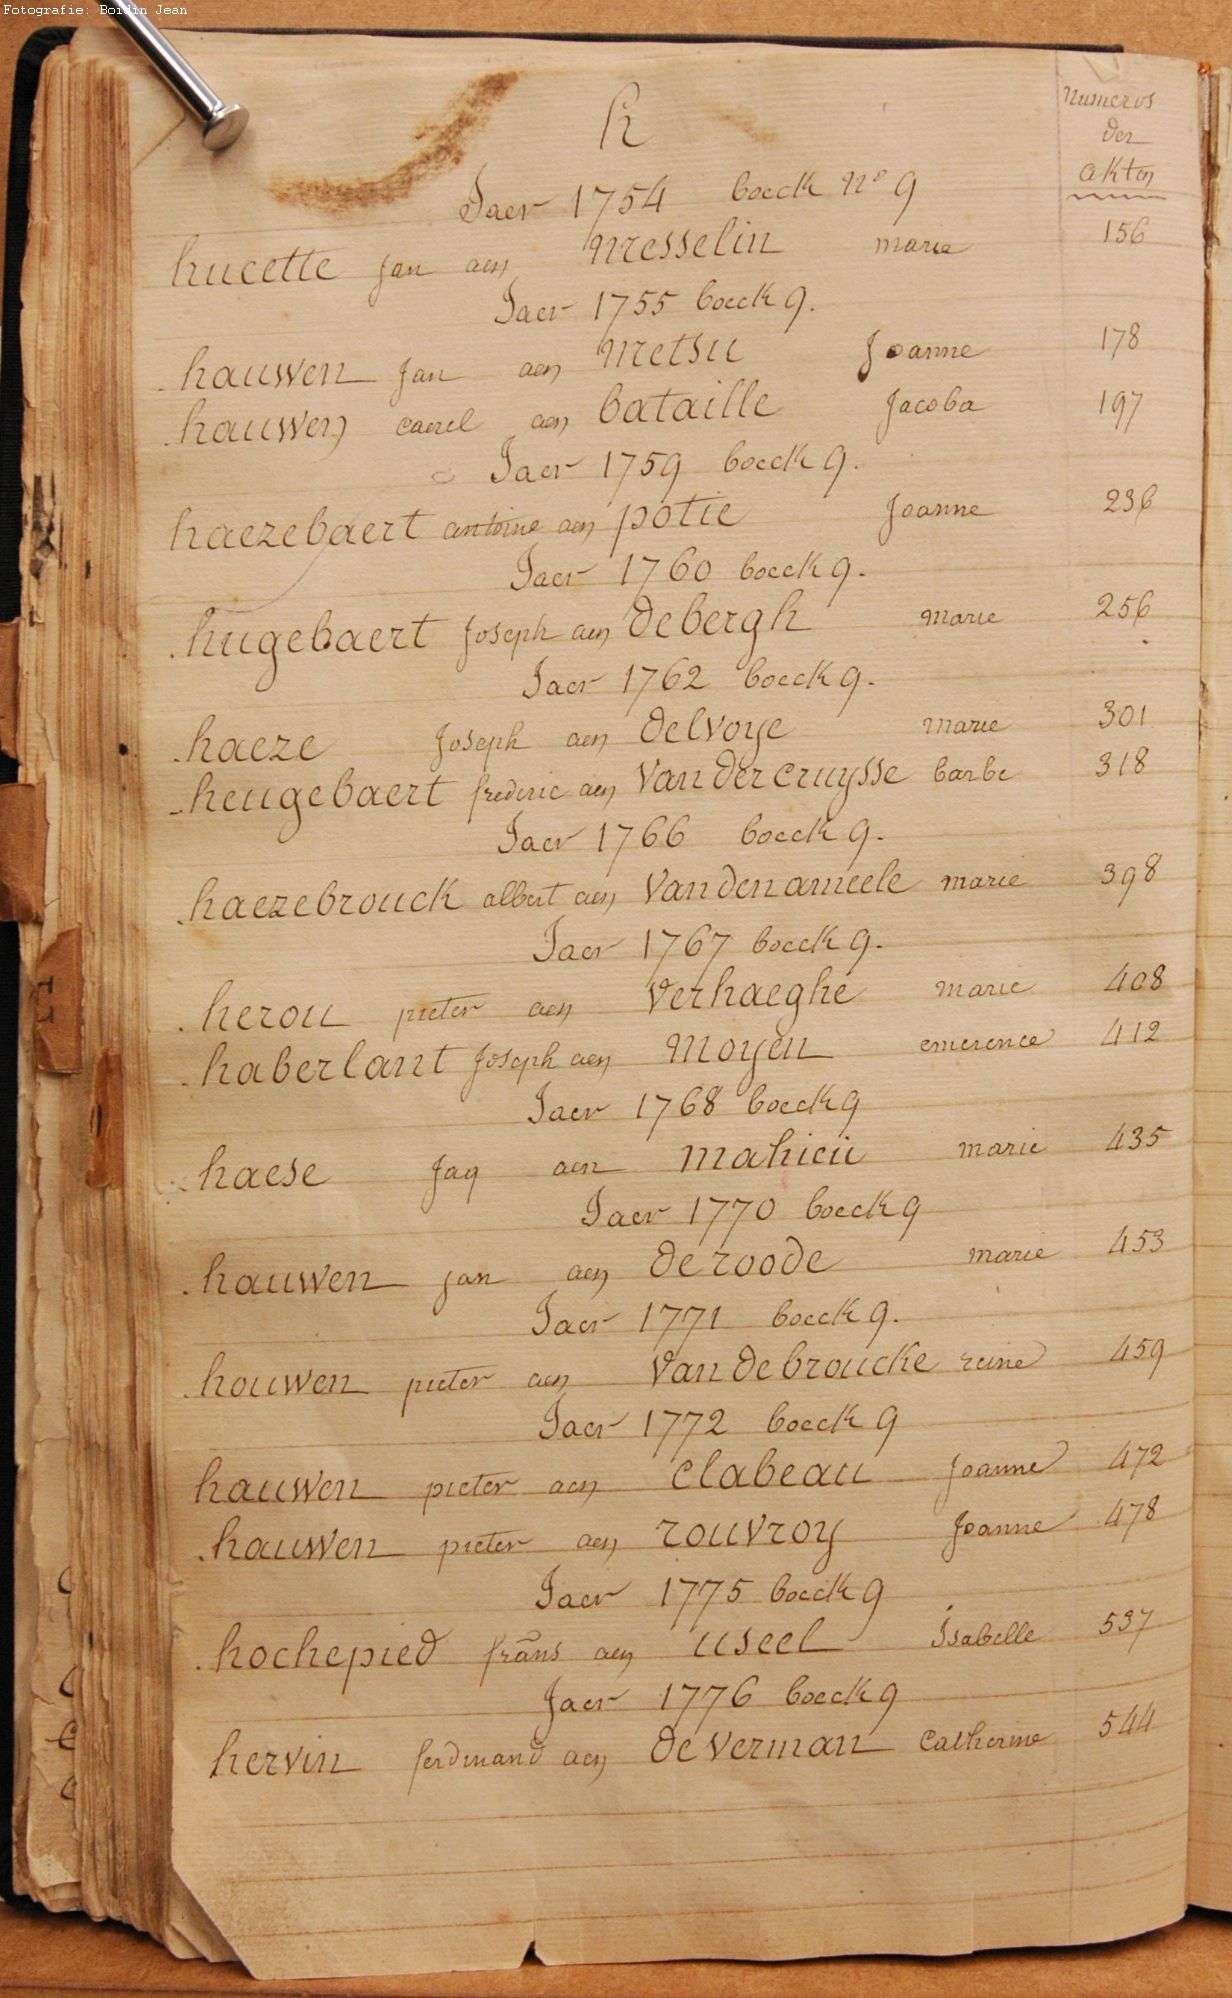 Fotografie: Boidin Jean
h
Numeros
der
akten
Jaer 1754 boeck No 9
hucette jan aen messelin marie 156
Jaer 1755 boeck 9.
hauwen jan aen metsu Joanne 178
hauwen carel aen bataille Jacoba 197
Jaer 1759 boeck 9.
haezebaert antoine aen potie Joanne 236
Jaer 1760 boeck 9.
hugebaert Joseph aen debergh marie 256
Jaer 1762 boeck 9.
haeze Joseph aen delvoye marie 301
heugebaert frederic aen Vandercruysse barbe 318
Jaer 1766 boeck 9.
haezebrouck albert aen Vandenameele marie 398
Jaer 1767 boeck 9.
herou pieter aen Verhaeghe marie 408
haberlant Joseph aen moyen emerence 412
Jaer 1768 boeck 9
haese Jaq aen mahieu marie 435
Jaer 1770 boeck 9
hauwen jan aen deroode marie 453
Jaer 1771 boeck 9.
houwen pieter aen Vandebroucke reine 459
Jaer 1772 boeck 9
hauwen pieter aen clabeau Joanne 472
hauwen pieter aen rouvroy Joanne 478
Jaer 1775 boeck 9
hochepied frans aen useel Isabelle 537
Jaer 1776 boeck 9
hervin ferdinand aen deverman Catherine 544